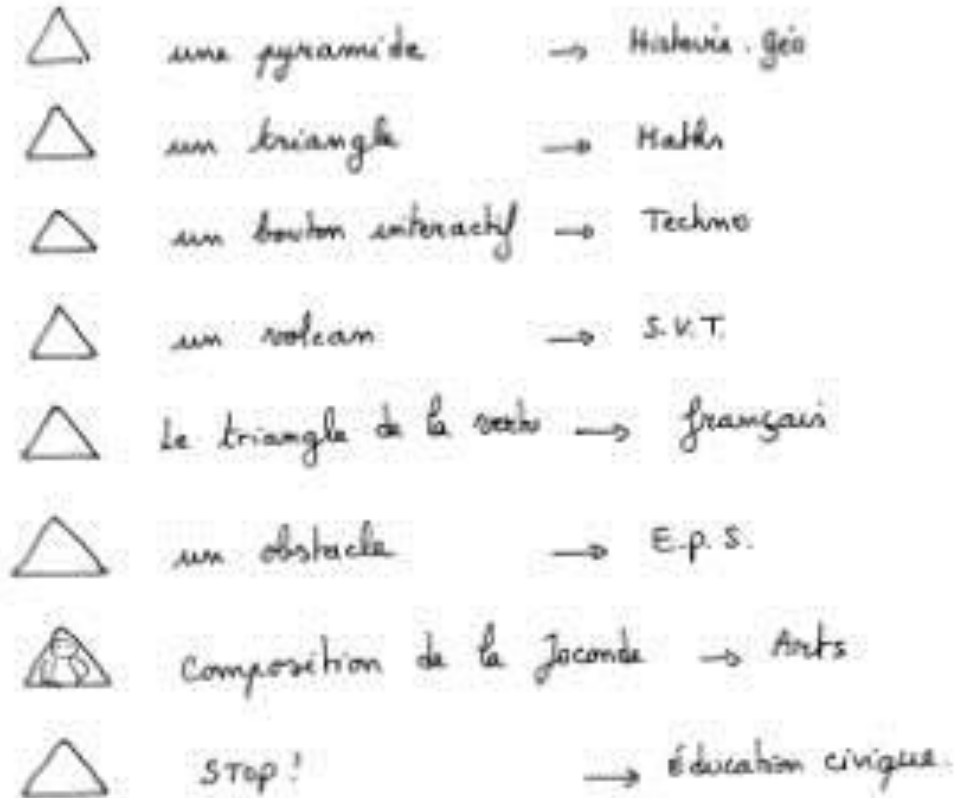 une pyramide → Histoire.géo
un triangle → Maths
un bouton interactif → Techno
un volcan → S.V.T.
Le triangle de la verbe → français
un obstacle → E.P.S.
Composition de la Joconde → Arts
STOP! → Éducation civique.